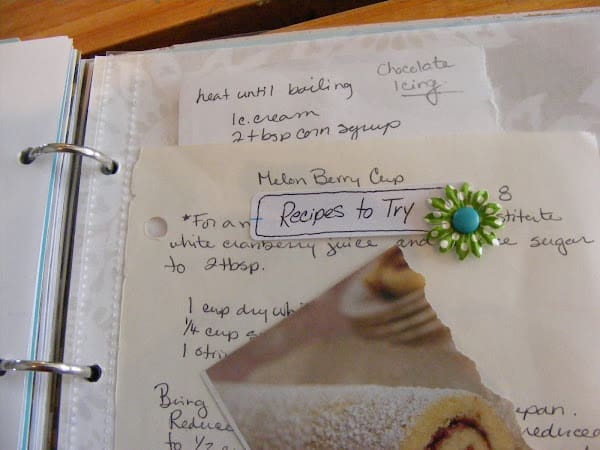 Chocolate
Icing
heat until boiling
1 c. cream
2 tbsp corn syrup
Melon Berry Cup
8
Recipes to Try
*For an stitute
white cranberry juice and e sugar
to 2 tbsp.
1 cup dry whi
1/4 cup s
1 stri
Bring epan.
Reduce reduced
to 1/2